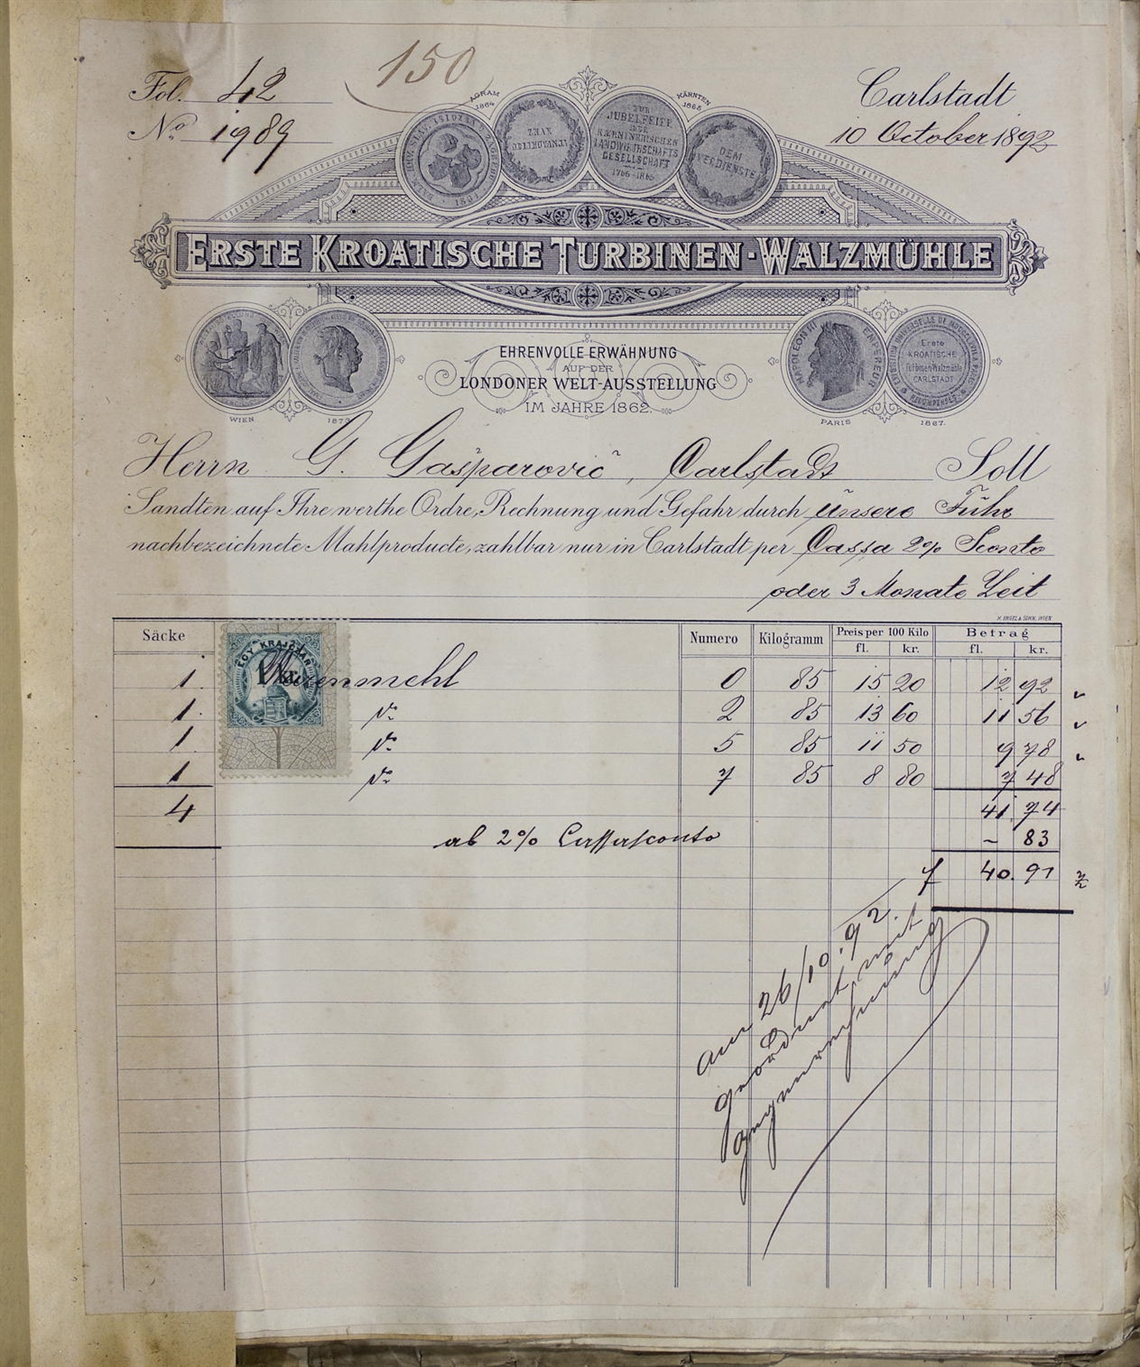 150
Fol. 42
Carlstadt
No 1989
10 October 1892
AGRAM 1864
KÄRNTEN 1865
ZUR JUBELFEIER DER KAERNTNERISCHEN LANDWIRTHSCHAFTS GESELLSCHAFT 1765-1865
DEM VERDIENSTE
ERSTE KROATISCHE TURBINEN-WALZMÜHLE
EHRENVOLLE ERWÄHNUNG
AUF DER
LONDONER WELT-AUSSTELLUNG
IM JAHRE 1862.
NAPOLEON III EMPEREUR
Erste KROATISCHE Turbinen-Walzmühle CARLSTADT
WIEN 1873
PARIS 1867.
Herrn G. Gašparović, Carlstadt Soll
Sandten auf Ihre werthe Ordre, Rechnung und Gefahr durch unsere Fuhr
nachbezeichnete Mahlproducte, zahlbar nur in Carlstadt per Cassa 2% Sconto
oder 3 Monate Zeit
Säcke Numero Kilogramm Preis per 100 Kilo Betrag
fl. kr. fl. kr.
EGY KRAJCZÁR
1 kr.
1. Weizenmehl 0 85 15 20 12 92
1. dto 2 85 13 60 11 56
1. dto 5 85 11 50 9 78
1 dto 7 85 8 80 7 48
4 41. 74
ab 2% Cassasconto – 83
f 40. 91
am 26/10. 92
geordnet mit
gegenrechnung